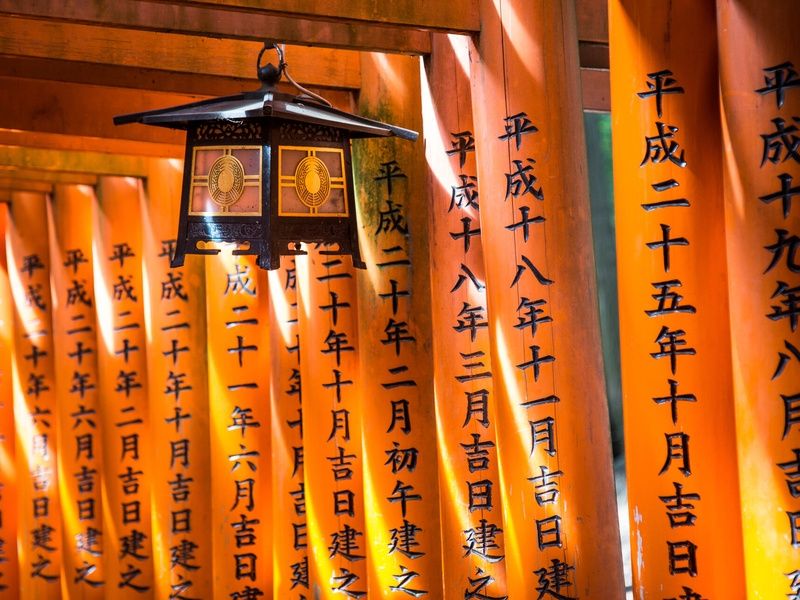 平成十九年八月吉日
平成二十五年十月吉日
平成十八年十一月吉日建
平成十八年三月吉日建之
平成二十年二月初午建之
二十年十月吉日建之
成二十年十月吉日建之
成二十一年六月吉日建
平成二十年十月吉日建之
平成二十年二月吉日建之
平成二十年六月吉日建之
平成二十年六月吉日建之